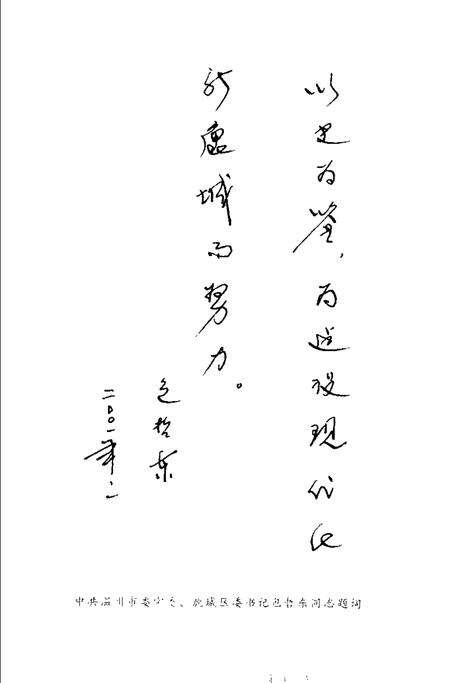 以史为鉴，为建设现代化
新鹿城而努力。
包哲东
二〇〇一年、二
中共温州市委常委、鹿城区委书记包哲东同志题词